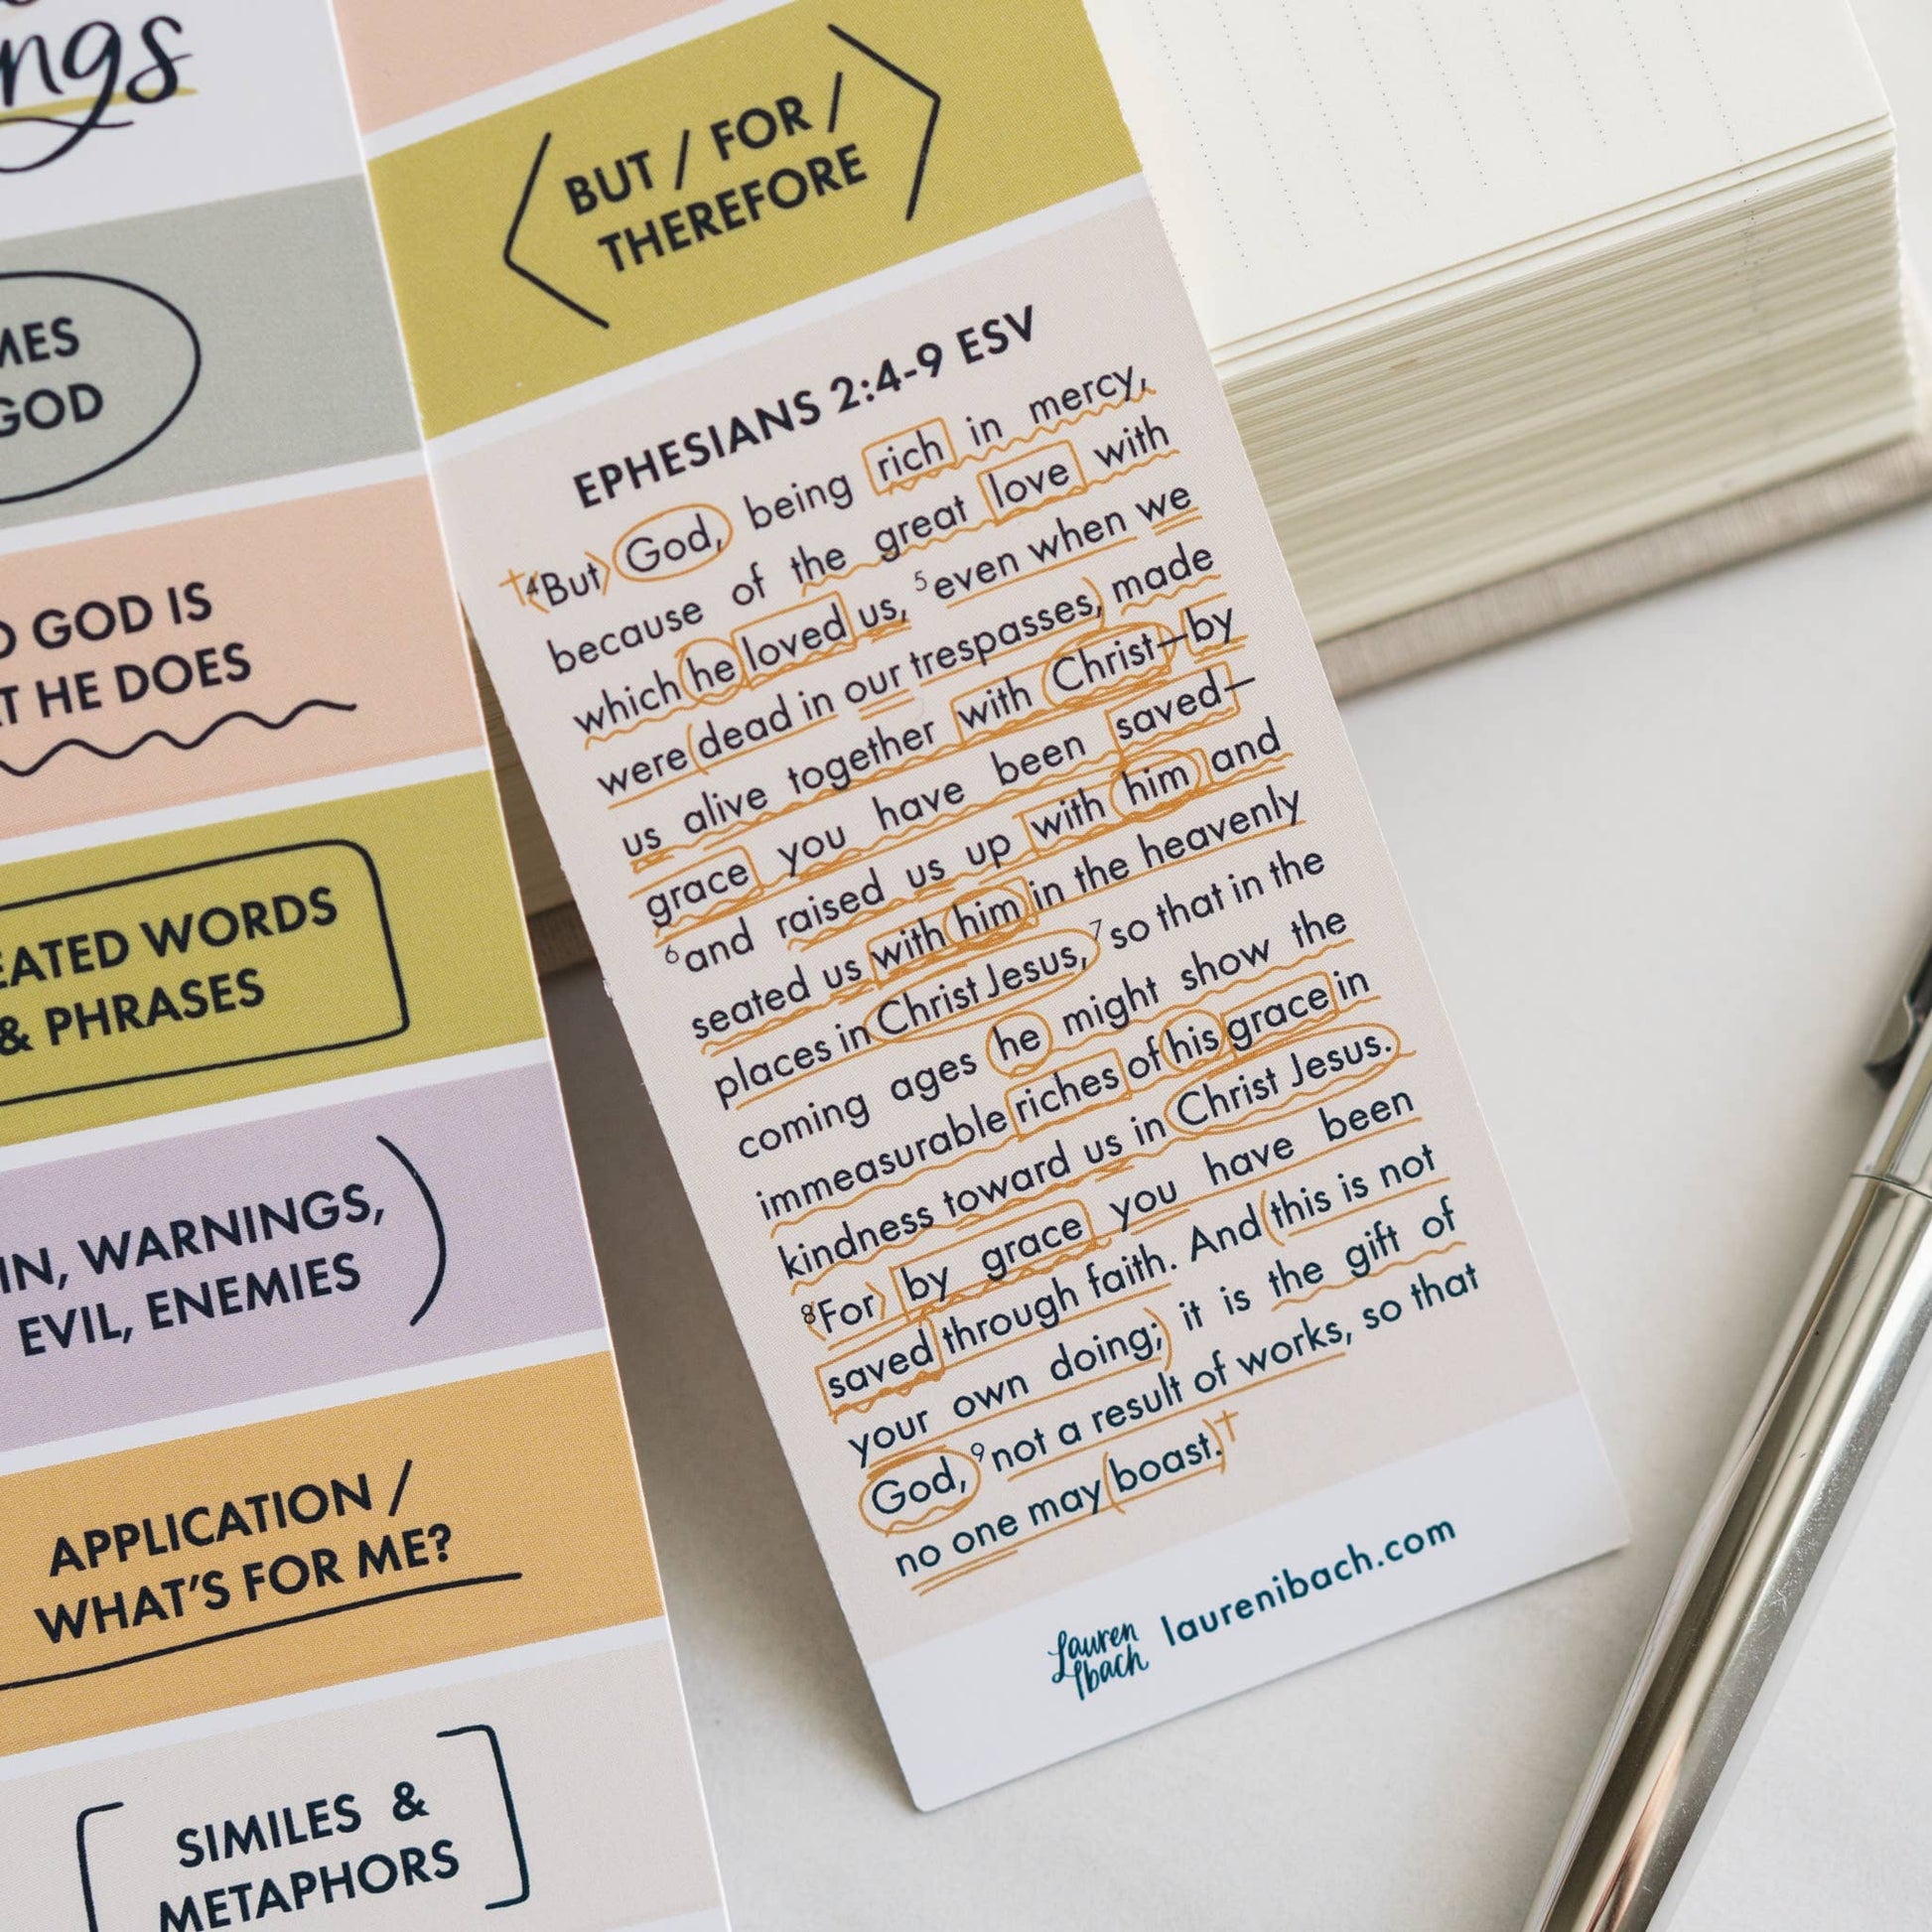 BUT / FOR /
THEREFORE
EPHESIANS 2:4-9 ESV
4But God, being rich in mercy,
because of the great love with
which he loved us, 5even when we
were dead in our trespasses, made
us alive together with Christ—by
grace you have been saved—
6and raised us up with him and
seated us with him in the heavenly
places in Christ Jesus, 7so that in the
coming ages he might show the
immeasurable riches of his grace in
kindness toward us in Christ Jesus.
8For by grace you have been
saved through faith. And this is not
your own doing; it is the gift of
God, 9not a result of works, so that
no one may boast.
Lauren
Ibach
laurenibach.com
GOD
GOD IS
HE DOES
WORDS
& PHRASES
WARNINGS,
EVIL, ENEMIES
APPLICATION /
WHAT'S FOR ME?
SIMILES &
METAPHORS